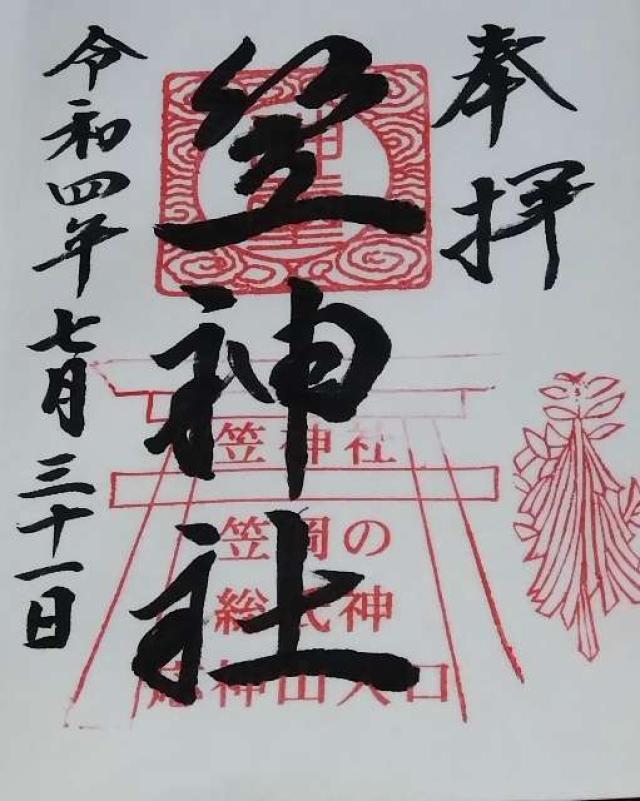 奉拝
笠神社
令和四年七月三十一日
笠神社
笠岡の
総氏神
応神山入口